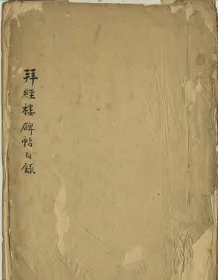 拜經樓碑帖目錄